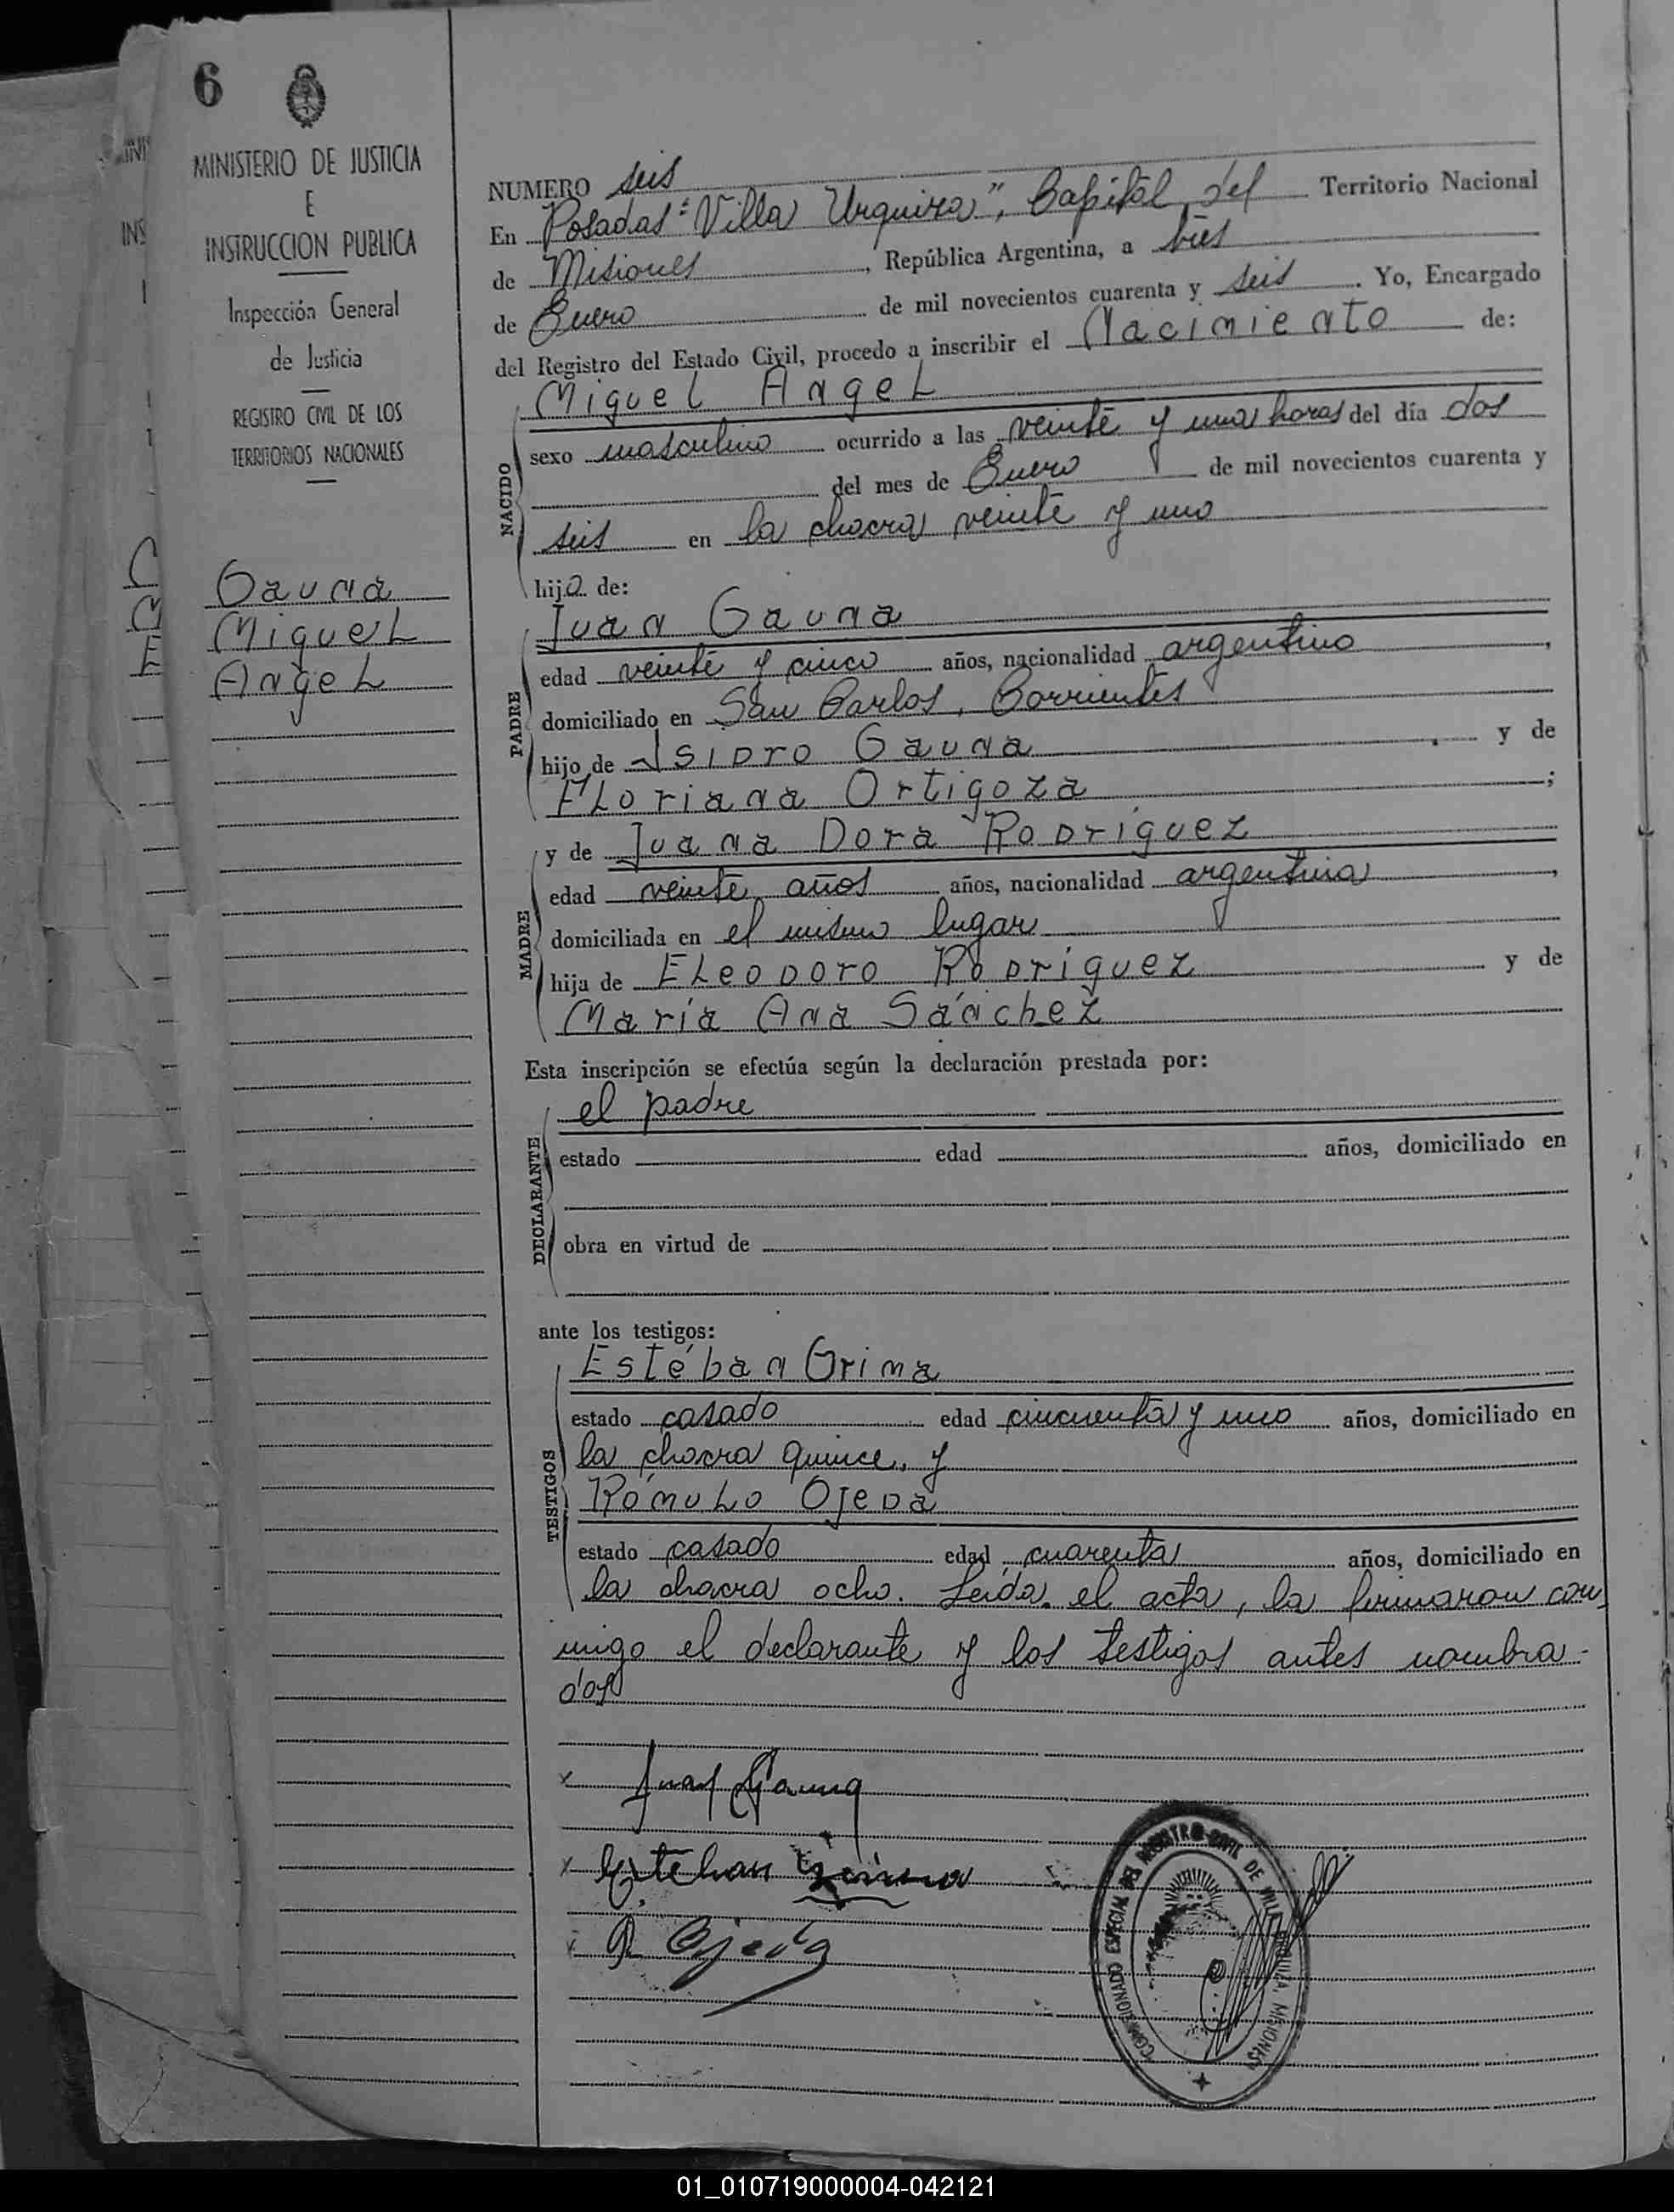 6
MINISTERIO DE JUSTICIA
E
INSTRUCCION PUBLICA
Inspección General
de Justicia
REGISTRO CIVIL DE LOS
TERRITORIOS NACIONALES
Gauna
Miguel
Angel
NUMERO seis
En Posadas "Villa Urquiza", Capital del Territorio Nacional
de Misiones, República Argentina, a tres
de Enero de mil novecientos cuarenta y seis. Yo, Encargado
del Registro del Estado Civil, procedo a inscribir el Nacimiento de:
Miguel Angel
NACIDO
sexo masculino ocurrido a las veinte y una horas del día dos
del mes de Enero de mil novecientos cuarenta y
seis en la chacra veinte y uno
hijo de:
Juan Gauna
PADRE
edad veinte y cinco años, nacionalidad argentino,
domiciliado en San Carlos, Corrientes
hijo de Isidro Gauna y de
Floriana Ortigoza;
y de Juana Dora Rodríguez
MADRE
edad veinte años años, nacionalidad argentina,
domiciliada en el mismo lugar
hija de Eleodoro Rodríguez y de
María Ana Sánchez
Esta inscripción se efectúa según la declaración prestada por:
el padre
DECLARANTE
estado edad años, domiciliado en
obra en virtud de
ante los testigos:
Estéban Grima
TESTIGOS
estado casado edad cincuenta y uno años, domiciliado en
la chacra quince, y
Rómulo Ojeda
estado casado edad cuarenta años, domiciliado en
la chacra ocho. Leída el acta, la firmaron con
migo el declarante y los testigos antes nombra-
dos
x Juan Gauna
x Esteban Grima
x R Ojeda
COMISIONADO ESPECIAL DEL REGISTRO CIVIL DE VILLA URQUIZA, MISIONES
01_010719000004-042121